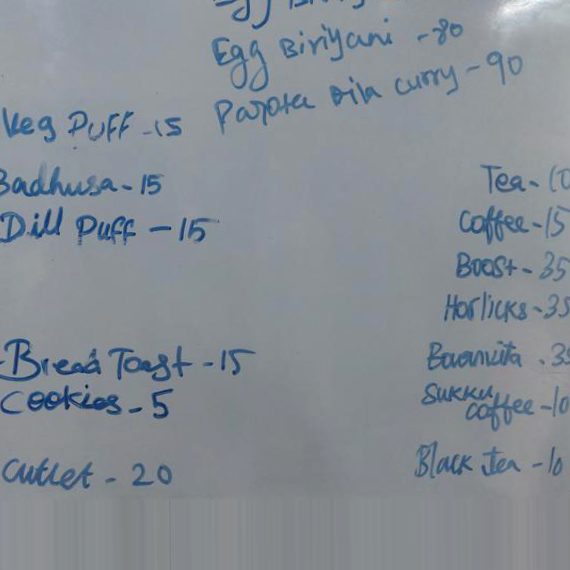 Egg Biriyani - 80
Parota with curry - 90
Veg Puff - 15
Badhusa - 15
Dill Puff - 15
Bread Toast - 15
Cookies - 5
Cutlet - 20
Tea - 10
Coffee - 15
Boost - 35
Horlicks - 35
Bournvita - 35
Sukku
coffee - 10
Black Tea - 10